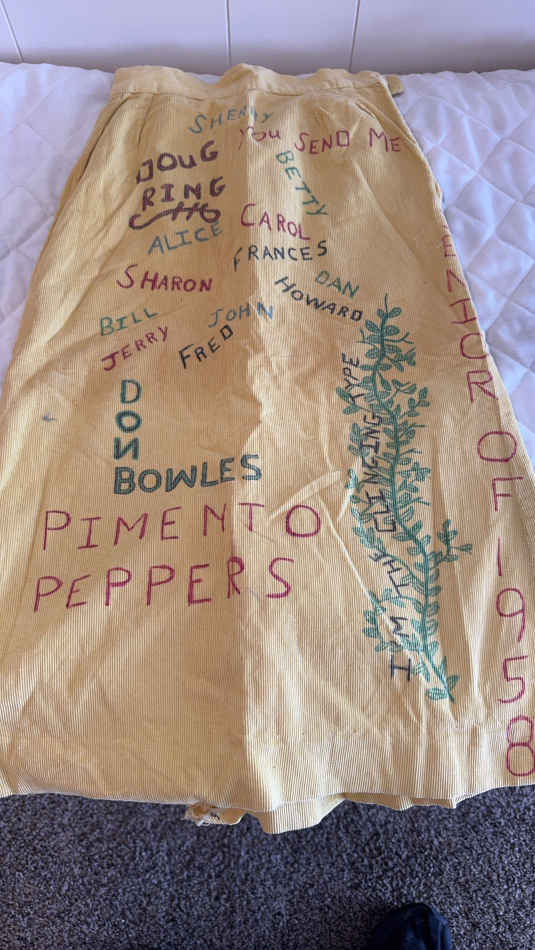 SHERRY
YOU SEND ME
DOUG
RING
BETTY
CAROL
ALICE
FRANCES
SHARON
DAN
HOWARD
BILL
JOHN
JERRY
FRED
DON
BOWLES
PIMENTO
PEPPERS
I'M THE CLINGING TYPE
ENIOR OF 1958